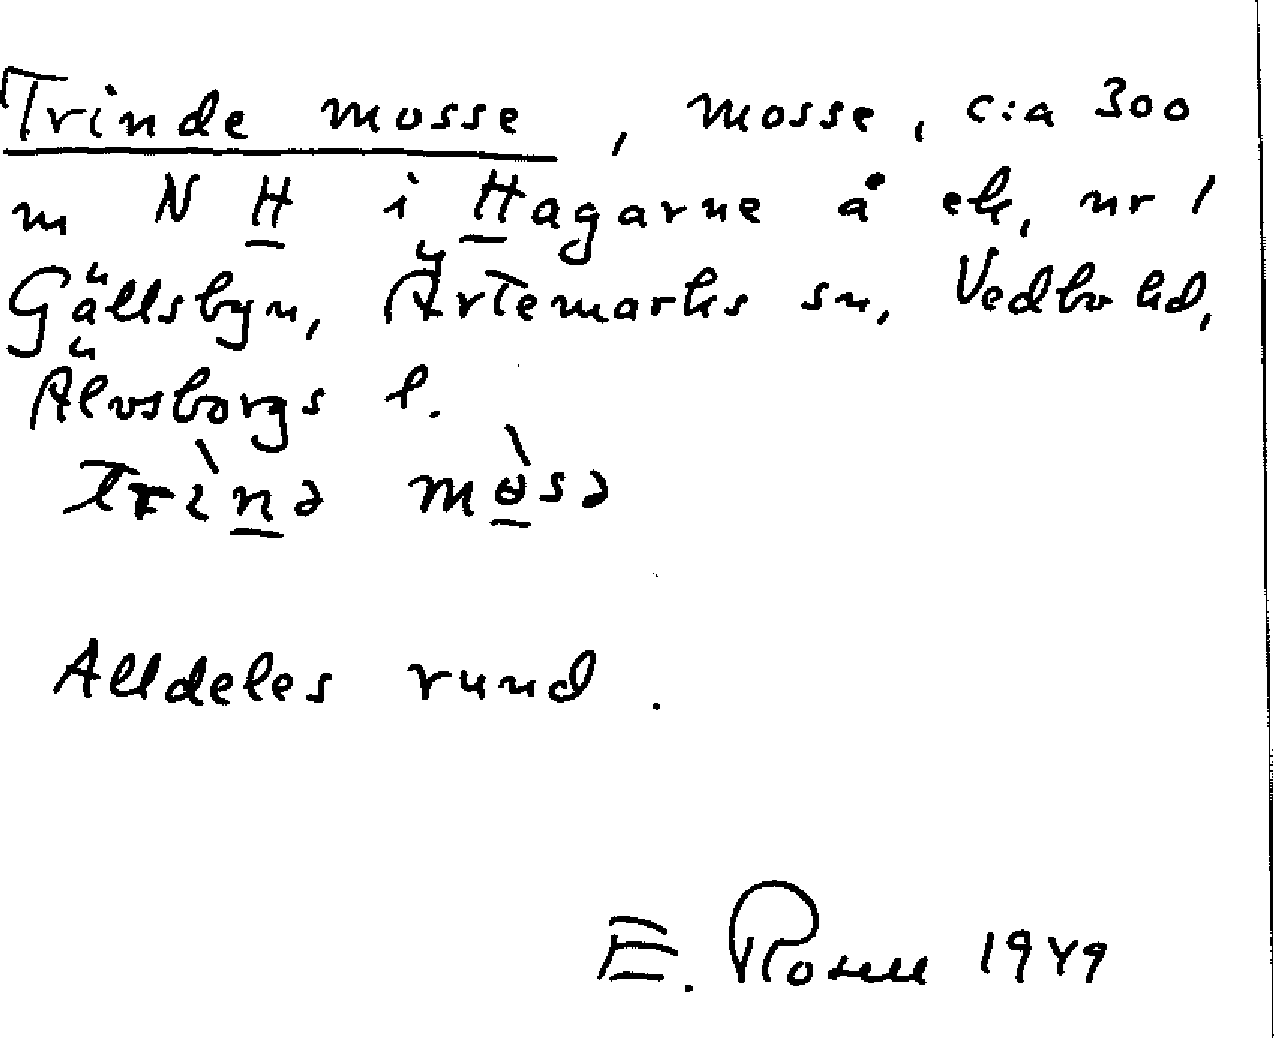 Trinde mosse, mosse, c:a 300
m N H i Hagarne å ek. nr 1
Gällsbyn, Ärtemarks sn, Vedbo hd,
Älvsborgs l.
trìnə mɵ̀sə
Alldeles rund.
E. Rosell 1949